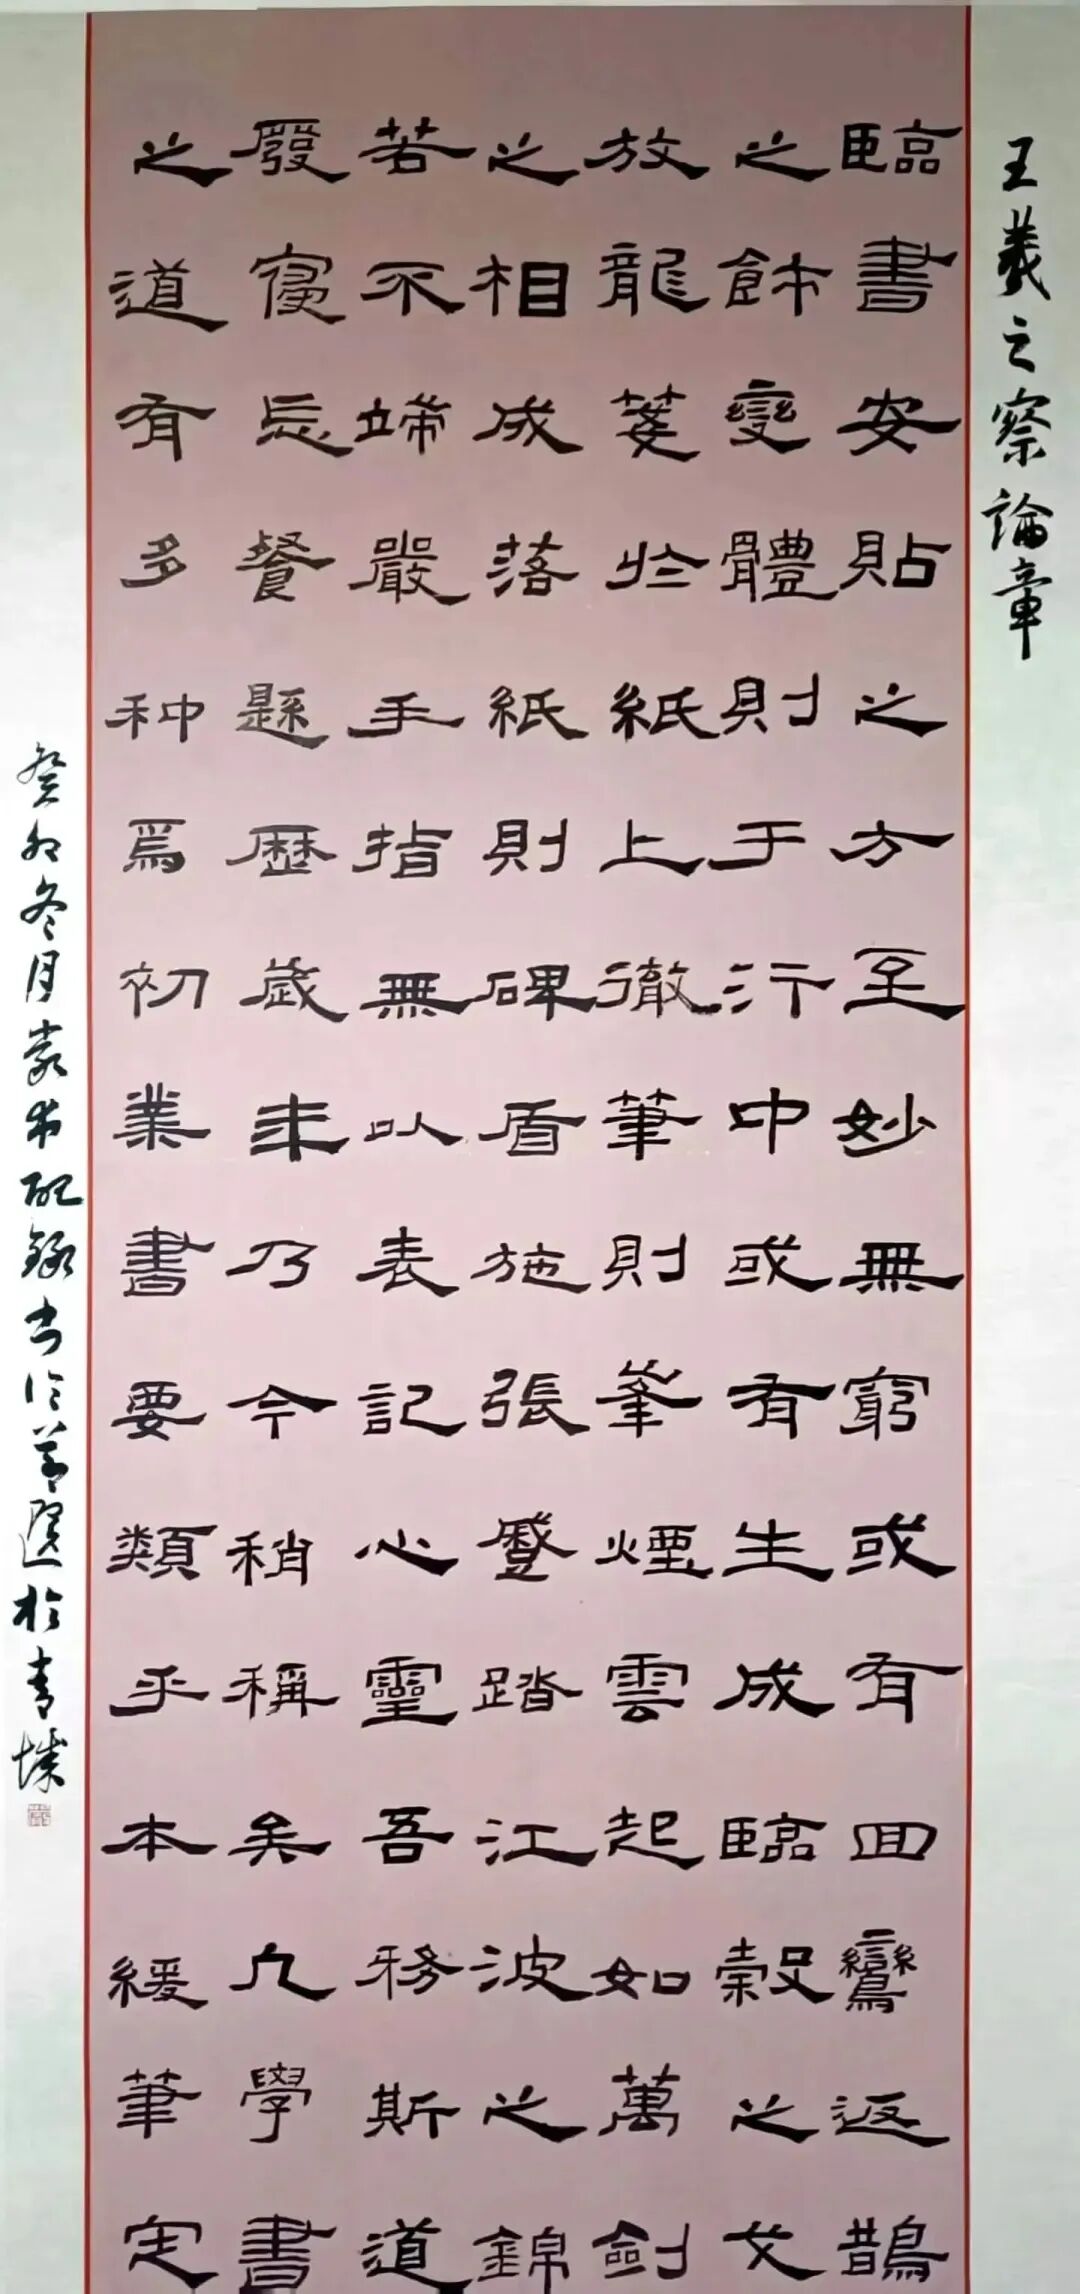 王羲之察論章
臨書安貼之方至妙無窮或有回鸞返鵲
之飾變體則于行中或有生成臨穀之戈
放龍箋於紙上徹筆則峯煙雲起如萬劍
之相成落紙則碑盾施張蹙踏江波之錦
若不端嚴手指無以表記心靈吾務斯道
廢寢忘餐懸歷歲年乃今稍稱矣凡學書
之道有多种焉初業書要類乎本緩筆定
癸卯冬月錄书论节選於青城